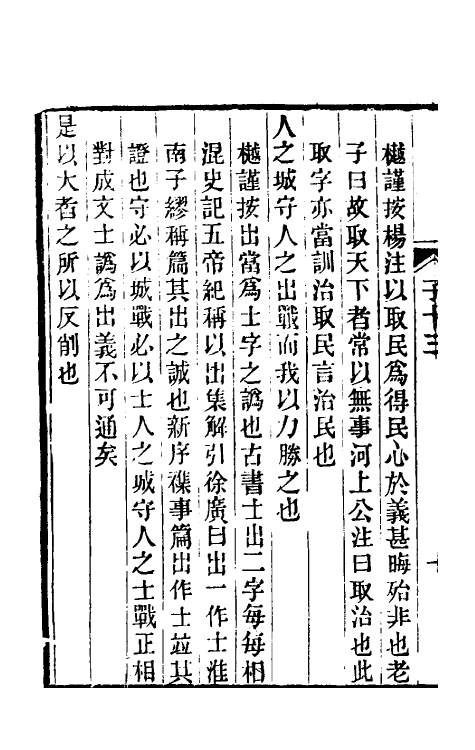 子十三
十
樾謹按楊注以取民爲得民心於義甚晦殆非也老
子曰故取天下者常以無事河上公注曰取治也此
取字亦當訓治取民言治民也
人之城守人之出戰而我以力勝之也
樾謹按出當爲士字之譌也古書士出二字每每相
混史記五帝紀稱以出集解引徐廣曰出一作士淮
南子繆稱篇其出之誠也新序襍事篇出作士並其
證也守必以城戰必以士人之城守人之士戰正相
對成文士譌爲出義不可通矣
是以大者之所以反削也